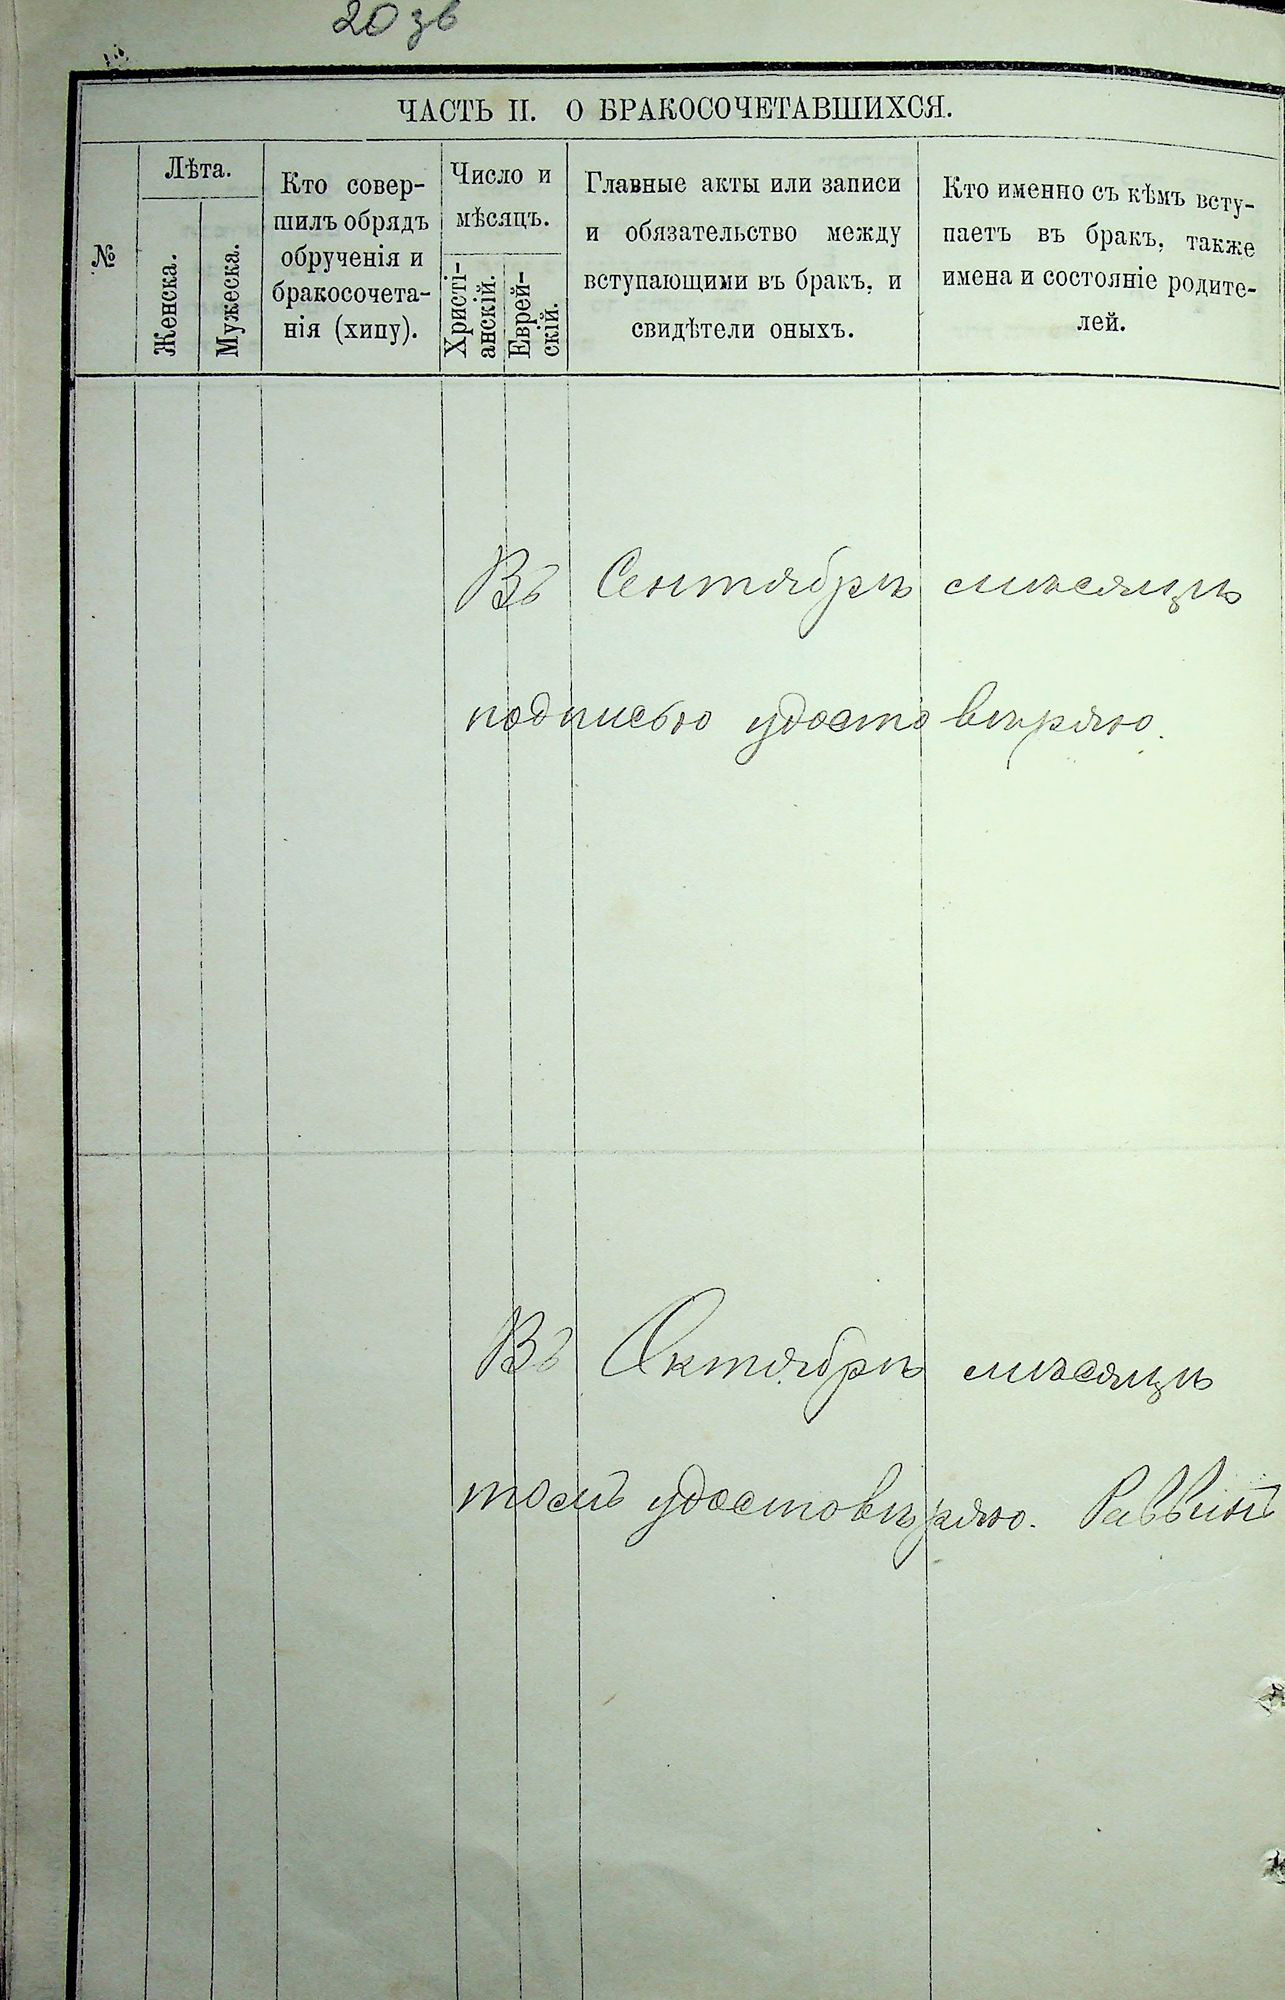 20 зв
ЧАСТЬ II. О БРАКОСОЧЕТАВШИХСЯ.
№
Лѣта.
Женска.
Мужеска.
Кто совер-
шилъ обрядъ
обрученія и
бракосочета-
нія (хипу).
Число и
мѣсяцъ.
Христі-
анскій.
Еврей-
скій.
Главные акты или записи
и обязательство между
вступающими въ бракъ, и
свидѣтели оныхъ.
Кто именно съ кѣмъ всту-
паетъ въ бракъ, также
имена и состояніе родите-
лей.
Въ Сентябрѣ мѣсяцѣ
подписью удостовѣряю.
Въ Октябрѣ мѣсяцѣ
томъ удостовѣряю. Раввинъ